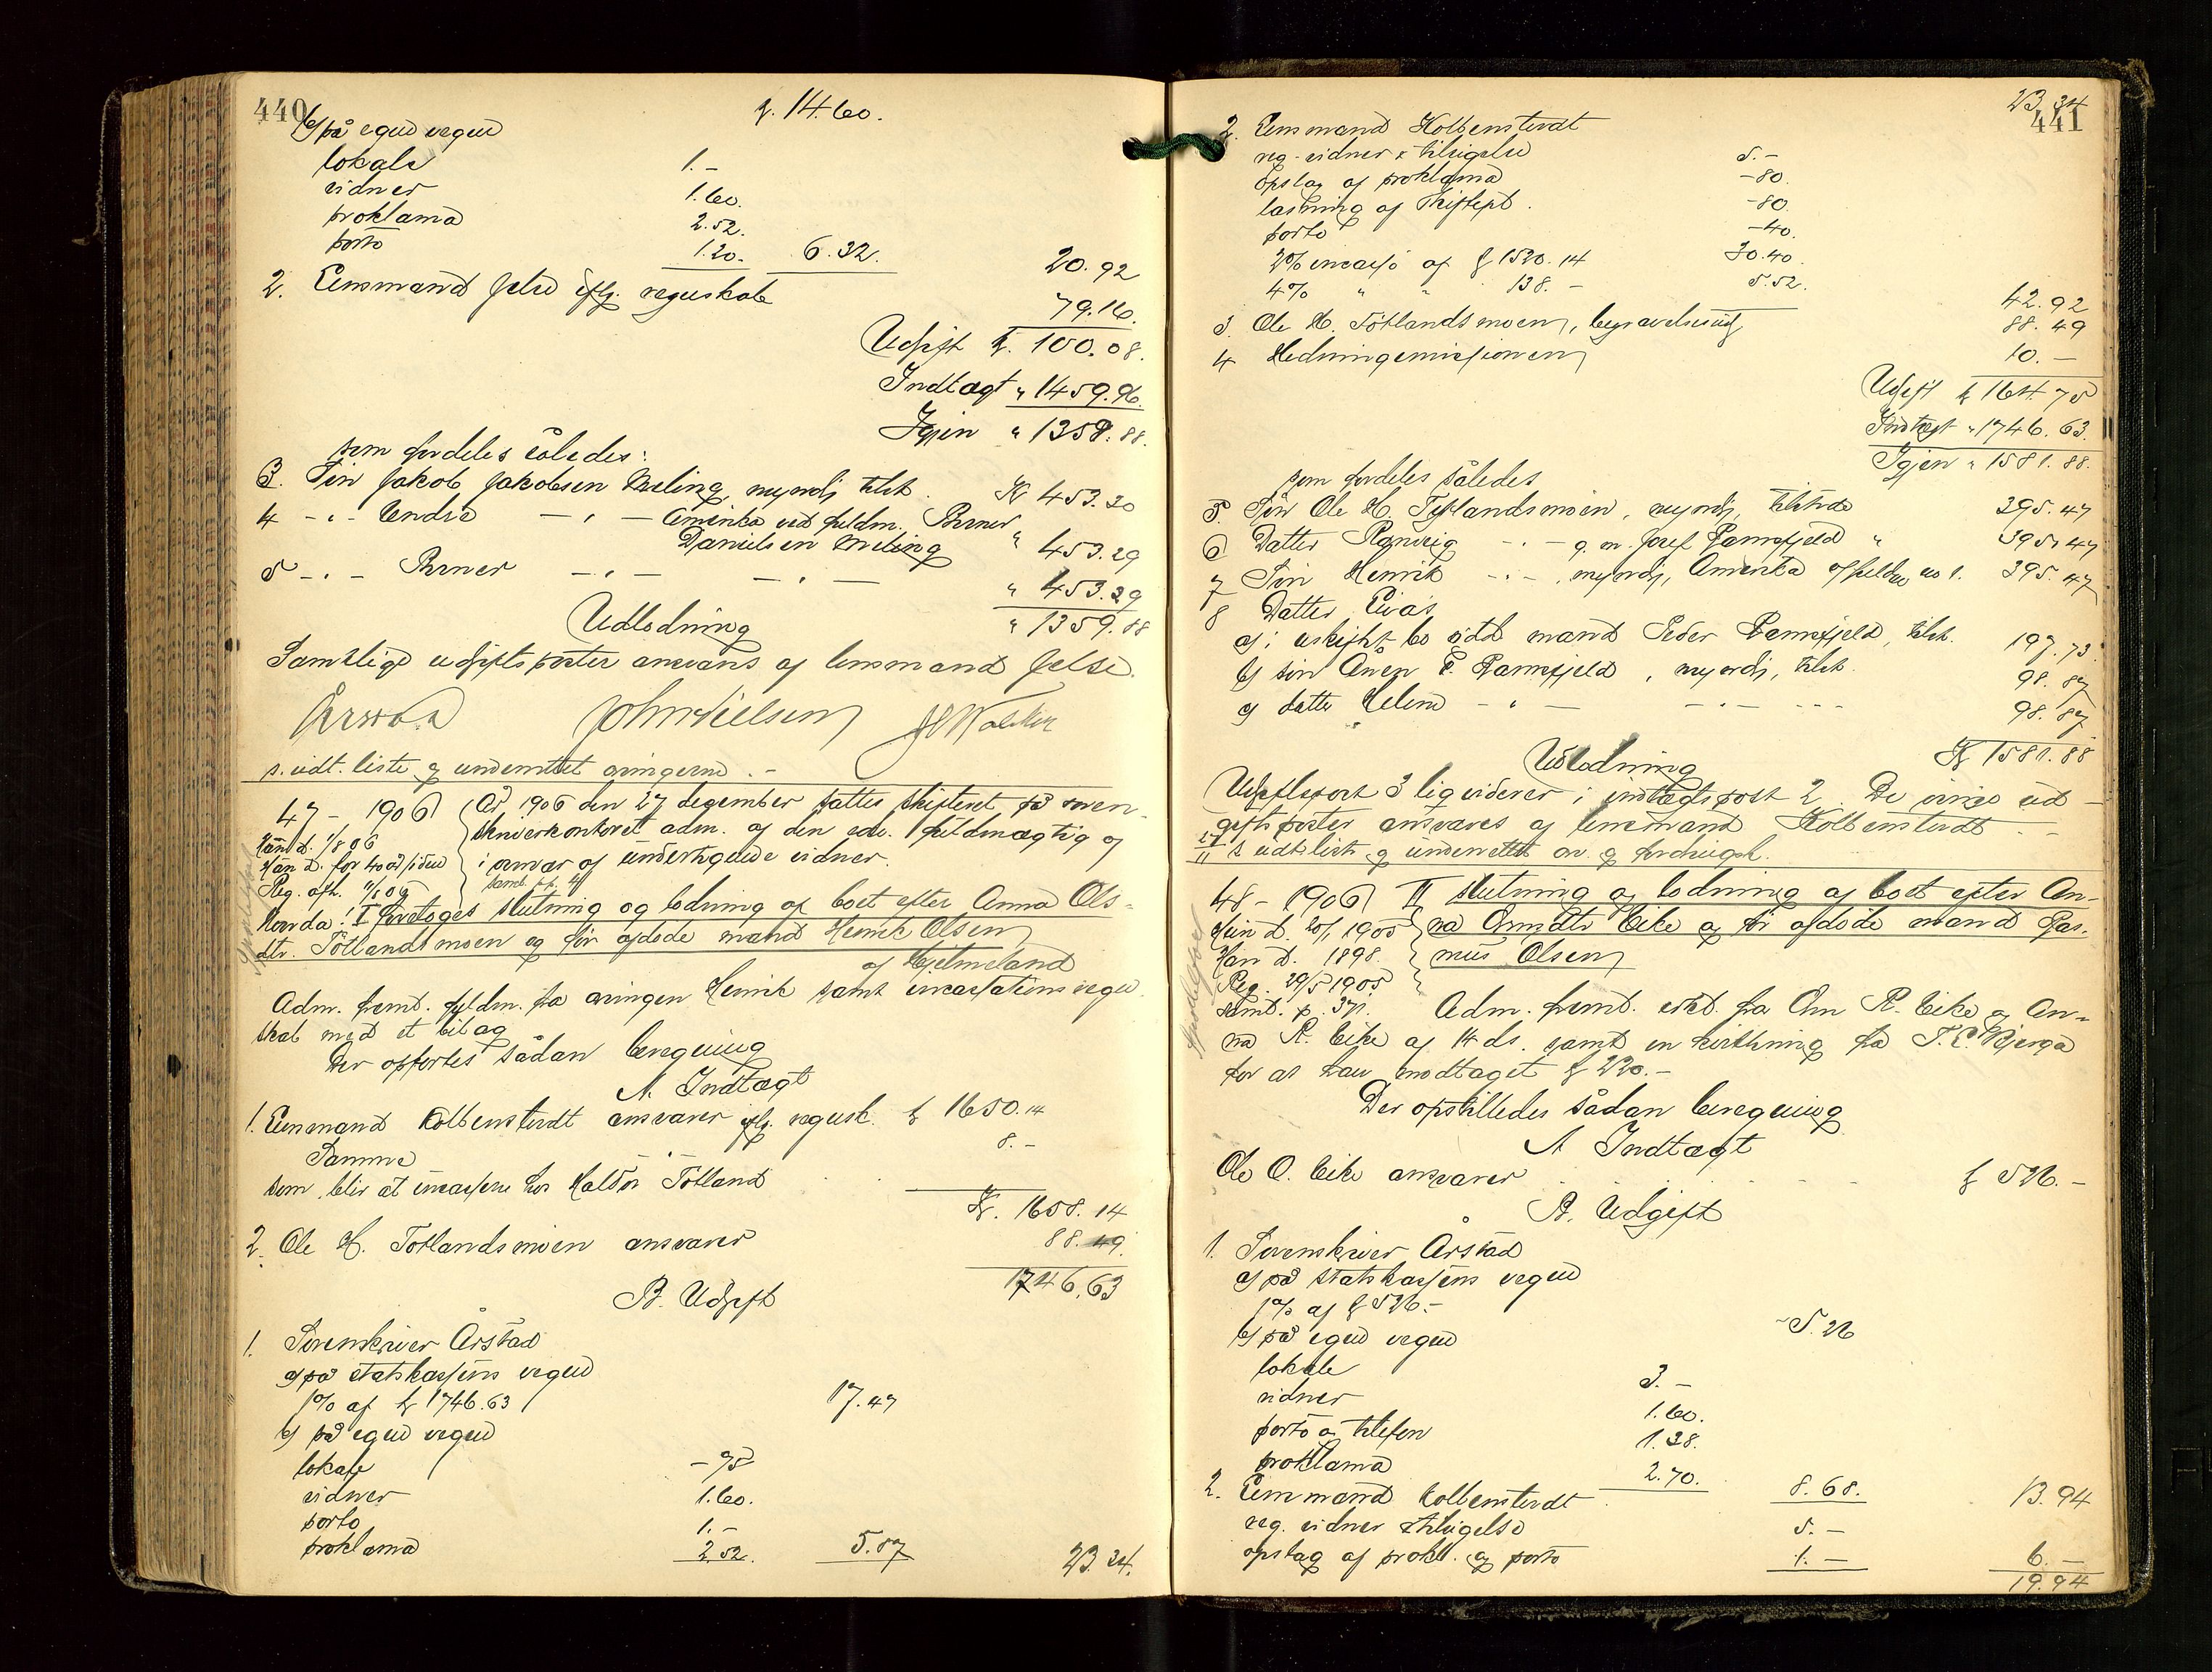 440
kr. 14.60.
b) på egne vegne
lokale 1.-
vidner 1.60.
proklama 2.52.
porto 1.20. 6.32. 20.92
2. Lensmand Jelse iflg. regnskab 79.16.
Udgift kr. 100.08.
Indtægt " 1459.96.
Igjen " 1359.88.
som fordeles således:
3. Søn Jakob Jakobsen Meling, myndig, tilst. Kr 453.30
4 -"- Endre -"- Amerika ved fuldm. Berner
Danielsen Meling " 453.29
5 -"- Berner -"- -"- " 453.29
" 1359.88
Udlodning
Samtlige udgiftsposter ansvares af lensmand Jelse.
Årstad John Nielsen
s. udt. liste og underrettet arvingerne.-
47 - 1906
År 1906 den 27 december sattes skifteret på soren-
skriverkontoret adm. af den edsv. fuldmægtig og
i nærvær af undertegnede vidner.
Han d. for 40 år siden
Reg. afh.
I foretoges slutning og lodning af boet efter Anna Ols-
dtr. Tøtlandsmoen og før afdøde mand Henrik Olsen
af Hjelmeland
Adm. freml. fuldm. fra arvingen Henrik samt incassationsregn-
skab med et bilag
Der opførtes sådan beregning
A. Indtægt
1. Lensmand Kolbenstvedt ansvarer iflg. regnsk. kr 1650.14
Samme 8.-
som blir at incassere hos Haldor Tøtland
Kr. 1658.14
2. Ole H. Tøtlandsmoen ansvarer 88.49.
1746.63
B. Udgift
1. Sorenskriver Årstad
a) på statskassens vegne
1% af kr 1746.63 17.47
b) på egne vegne
lokale -75
vidner 1.60.
porto 1.-
proklama 2.52. 5.87 23.34.
23.34
441
2. Lensmand Kolbenstvedt
reg. vidner & tilsigelse 5.-
Opslag af proklama -80.
læsning af skiftept. -80.
porto -40.
2% incasso af kr 1520.14 30.40.
4% " " 138.- 5.52. 42.92
3. Ole H. Tøtlandsmoen, begravelsesudg 88.49
4 Hedningemissionen 10.-
Udgift kr 164.75
Indtægt " 1746.63.
Igjen " 1581.88.
som fordeles således
5. Søn Ole H. Tøtlandsmoen, myndig, tilstede 395.47
6 Datter Ranveig -"- g. m. Josef Ramsfjeld " 395.47
7 Søn Henrik -"-, myndig, Amerika 395.47
8 Datter Eva's
a) i uskiftet bo sidd. mand Peder Ramsfjeld, tilst. 197.73.
b) søn Anen P. Ramsfjeld, myndig, tilst. 98.87
c) datter Helene -"- -"- 98.87
Kr 1581.88
Udlodning
Udgiftspost 3 liqviderer i indtægtspost 2. De øvrige ud-
giftsposter ansvares af lensmand Kolbenstvedt.-
s udt. liste og underrettet arv. og
48 - 1906
II Slutning og lodning af boet efter An-
na Omsdtr Eike og før afdøde mand Ras-
mus Olsen
Hun d. 20/1 1905
Han d. 1898.
Reg. 29/5 1905
saml. p. 371.
Adm. freml. erkl. fra Om R. Eike og An-
na R. Eike af 14 ds. samt en kvittering fra T. E. Bjerga
for at have modtaget kr 220.-
Der opstilledes sådan beregning
A Indtægt
Ole O. Eike ansvarer kr 526.-
B. Udgift
1. Sorenskriver Årstad
a) på statskassens vegne
1% af kr 526.- 5.26
b) på egne vegne
lokale 3.-
vidner 1.60.
porto og telefon 1.38.
proklama 2.70. 8.68. 13.94
2. Lensmand Kolbenstvedt
reg. vidner & tilsigelse 5.-
opslag af prokl. og porto 1.- 6.-
19.94